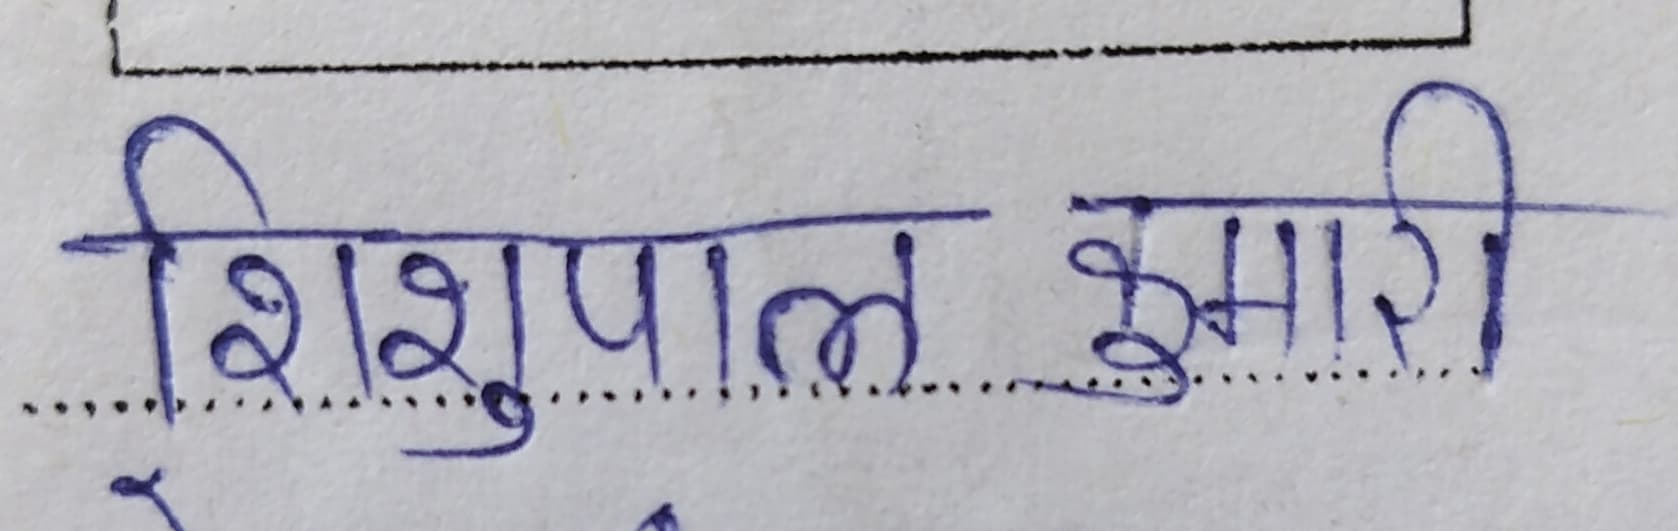 शिशुपाल कुमारी